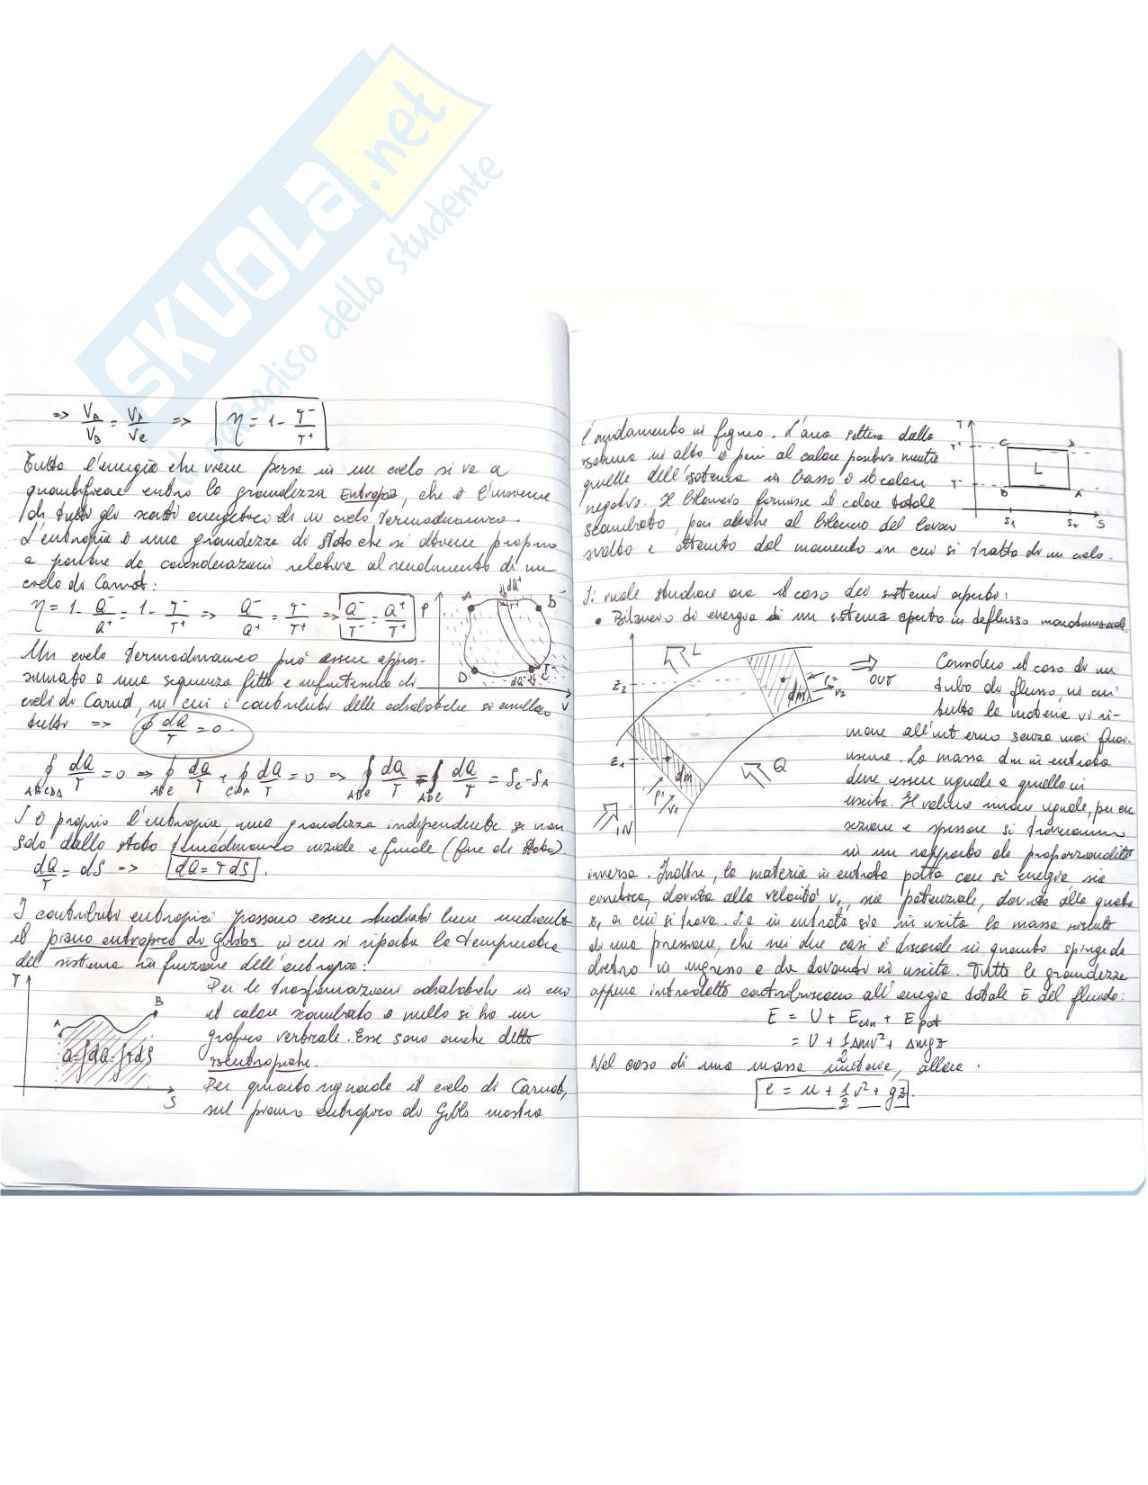 SKUOLA.net
paradiso dello studente
=> V_A/V_B = V_A/V_C => η = 1 - T⁻/T⁺
Tutta l'energia che viene persa in un ciclo si va a
quantificare entro la grandezza Entropia, che è l'insieme
di tutti gli scarti energetici di un ciclo termodinamico.
L'entropia è una grandezza di stato che si ottiene proprio
a partire da considerazioni relative al rendimento di un
ciclo di Carnot:
η = 1 - Q⁻/Q⁺ = 1 - T⁻/T⁺ => Q⁻/Q⁺ = T⁻/T⁺ => Q⁻/T⁻ = Q⁺/T⁺
P A B dQ⁺ D C dQ⁻ V
Un ciclo termodinamico può essere appros-
simato a una sequenza fitta e infinitesima di
cicli di Carnot, in cui i contributi delle adiabatiche si annullano
tutti => ∮ dQ/T = 0.
∮ABCDA dQ/T = 0 => ∮ABC dQ/T + ∮CDA dQ/T = 0 => ∮ABC dQ/T = ∮ADC dQ/T = S_C - S_A
S è proprio l'entropia, una grandezza indipendente se non
solo dallo stato termodinamico iniziale e finale (funz. di stato).
dQ/T = dS => dQ = T dS.
I contributi entropici possono essere studiati bene mediante
il piano entropico di Gibbs in cui si riporta la temperatura
del sistema in funzione dell'entropia:
T A B Q=∫dQ=∫TdS S
Per le trasformazioni adiabatiche in cui
il calore scambiato è nullo si ha un
grafico verticale. Esse sono anche dette
isentropiche.
Per quanto riguarda il ciclo di Carnot,
sul piano entropico di Gibbs mostra
l'andamento in figura. L'area sottesa dalla
isoterma in alto è pari al calore positivo mentre
quella dell'isoterma in basso è il calore
negativo. Il bilancio fornisce il calore totale
scambiato, pari anche al bilancio del lavoro
svolto e ottenuto dal momento in cui si tratta di un ciclo.
T T⁺ T⁻ C D L B A S₁ S₂ S
Si vuole studiare ora il caso dei sistemi aperti:
• Bilancio di energia di un sistema aperto in deflusso monodimensionale.
L z₂ dm v₂ OUT
z₁ dm v₁ Q IN
Considero il caso di un
tubo di flusso, in cui
tutta la materia vi ri-
mane all'interno senza mai fuori-
uscire. La massa dm in entrata
deve essere uguale a quella in
uscita. Il volume rimane uguale, per cui
sezione e spessore si troveranno
in un rapporto di proporzionalità
inversa. Inoltre, la materia in entrata porta con sé energia sia
cinetica, dovuta alla velocità v₁, sia potenziale, dovuta alla quota
z₁ a cui si trova. Sia in entrata sia in uscita la massa risente
di una pressione, che nei due casi è discorde in quanto spinge da
dietro in ingresso e da davanti in uscita. Tutte le grandezze
appena introdotte contribuiscono all'energia totale E del fluido:
E = U + E cin + E pot
= U + 1/2 Δmv² + Δmgz
Nel caso di una massa unitaria, allora:
e = u + 1/2 v² + gz.